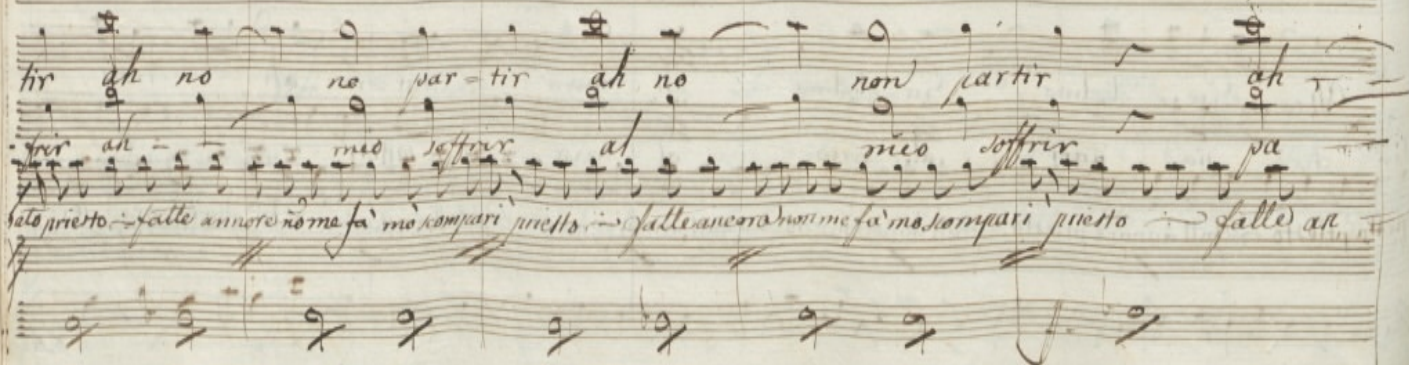 tir ah no no par = tir ah no non partir ah
frir ah - - mio soffrir al mio soffrir pa
priesto falle annore nõ me fà mò scomparì priesto falle ancora non me fà mo scomparì priesto falle an